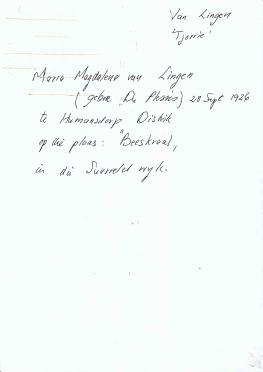 Van Lingen
'Tjorrie'
Maria Magdalena van Lingen
(gebore Du Plessis) 28 Sept 1926
te Humansdorp Distrik
op die plaas: "Beeskraal,
in die Suurveld wyk.